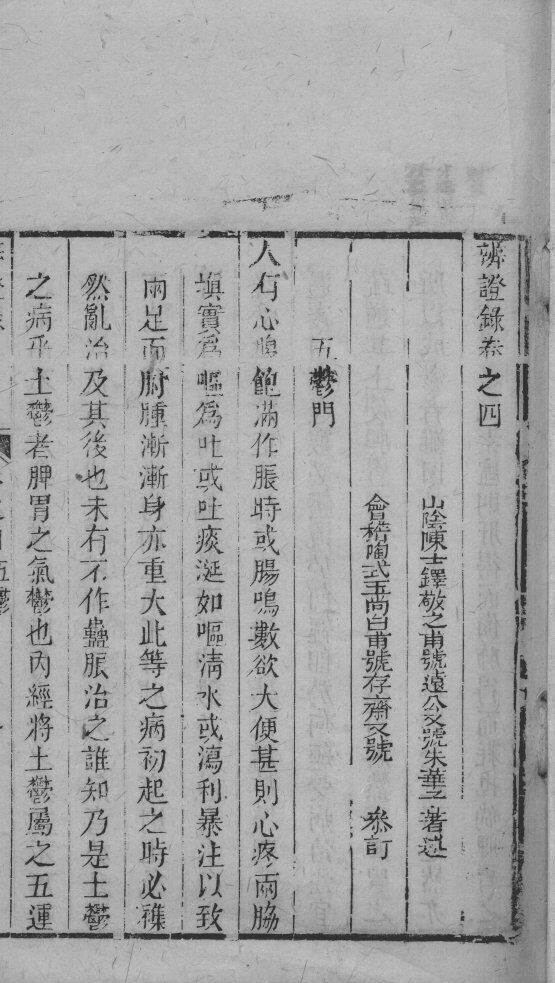 辨證錄卷之四
山陰陳士鐸敬之甫號遠公又號朱華子著述
會稽陶式玉尚白甫號存齋又號 參訂
五鬱門
人有心腹飽滿作脹時或腸鳴數欲大便甚則心疼兩脇
塡實爲嘔爲吐或吐痰涎如嘔淸水或瀉利暴注以致
兩足面胕腫漸漸身亦重大此等之病初起之時必襍
然亂治及其後也未有不作蠱脹治之誰知乃是土鬱
之病乎土鬱者脾胃之氣鬱也內經將土鬱屬之五運